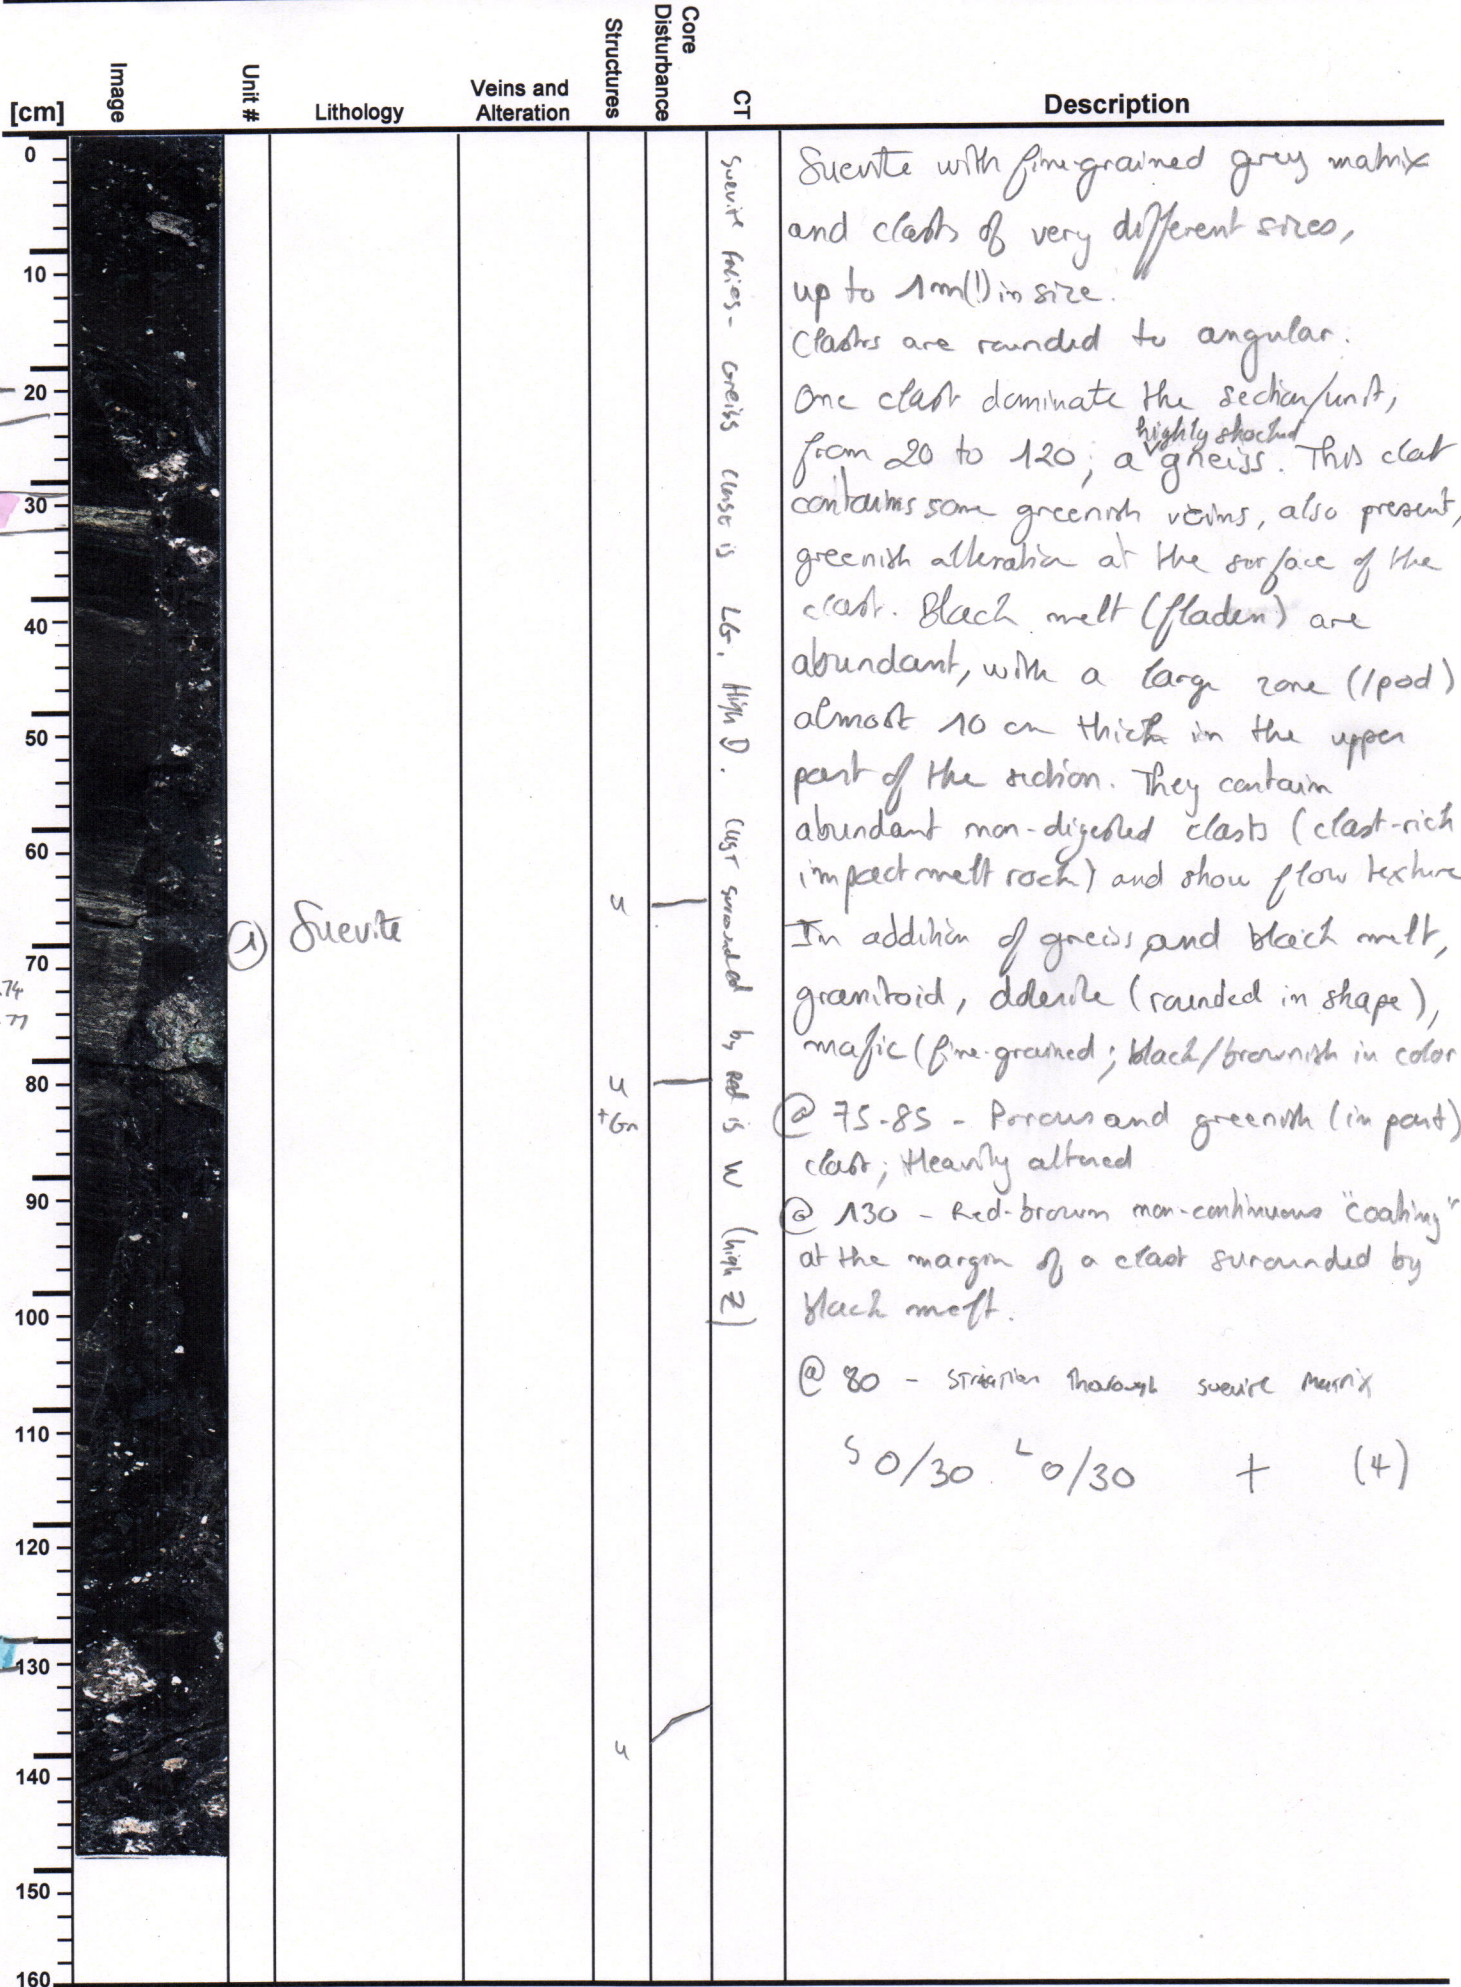 [cm]
Image
Unit #
Lithology
Veins and
Alteration
Structures
Core
Disturbance
CT
Description
0
10
20
30
40
50
60
70
80
90
100
110
120
130
140
150
160
74
77
①
Suevite
u
u
+Gn
u
Suevite facies - Greiss clast is LG, High D. Clast surrounded by Red is W (high Z)
Suevite with fine-grained grey matrix
and clasts of very different sizes,
up to 1m(!) in size.
Clasts are rounded to angular.
One clast dominate the section/unit,
highly shocked
from 20 to 120; a gneiss. This clat
contains some greenish veins, also present,
greenish alteration at the surface of the
clast. Black melt (fladen) are
abundant, with a large zone (/pod)
almost 10 cm thick in the upper
part of the section. They contain
abundant non-digested clasts (clast-rich
impact melt rock) and show flow texture
In addition of gneiss and black melt,
granitoid, dolerite (rounded in shape),
mafic (fine-grained; black/brownish in color
@ 75-85 - Porous and greenish (in part)
clast; Heavily altered
@ 130 - Red-brown non-continuous "coating"
at the margin of a clast surounded by
black melt.
@ 80 - striation thorough suevite matrix
S 0/30 L 0/30 + (4)